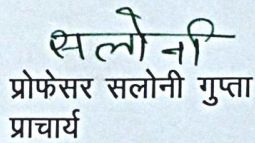 सलोनी
प्रोफेसर सलोनी गुप्ता
प्राचार्य